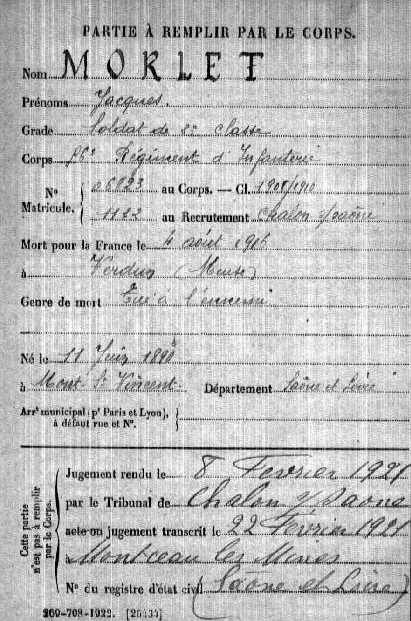 PARTIE À REMPLIR PAR LE CORPS.
Nom MORLET
Prénoms Jacques.
Grade Soldat de 2e classe
Corps Régiment d'Infanterie
Nº Matricule. { au Corps. — Cl. 1908/1910
1122 au Recrutement Chalon s/saône
Mort pour la France le 4 août 1916
à Verdun (Meuse)
Genre de mort Tué à l'ennemi
Né le 11 Juin 1890
à Mont St Vincent Département Saône et Loire
Arrt municipal (pr Paris et Lyon), à défaut rue et Nº.
Cette partie n'est pas à remplir par le Corps.
Jugement rendu le 8 Fevrier 1921
par le Tribunal de Chalon s/saone
acte ou jugement transcrit le 22 Février 1921
Montceau les Mines
Nº du registre d'état civil (Saone et Loire)
269-708-1922. [26434]